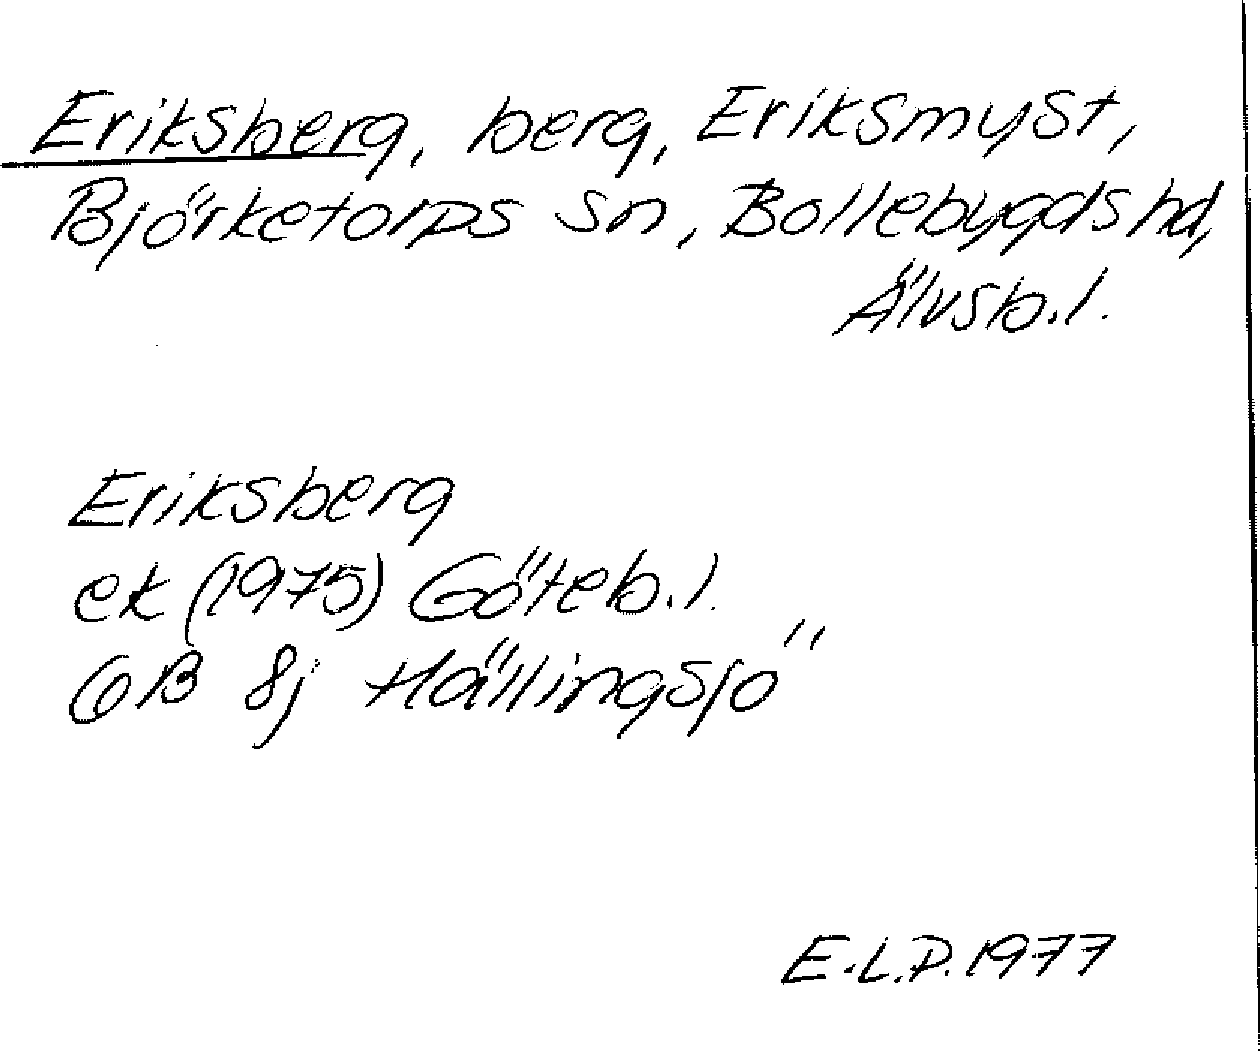 Eriksberg, berg, Eriksmyst,
Björketorps sn, Bollebygds hd,
Älvsb.l.
Eriksberg
ek (1975) Göteb.l.
6B 8j Hällingsjö
E.L.P. 1977